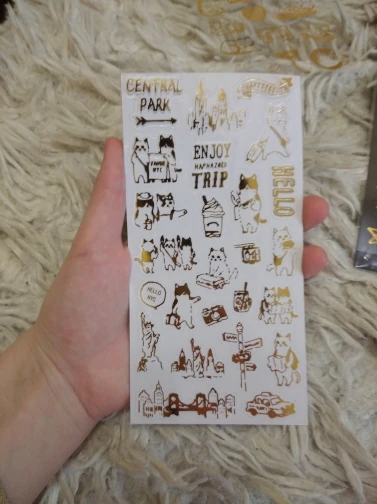 CENTRAL
PARK
ENJOY
HAPHAZARD
TRIP
HELLO
HELLO
NYC